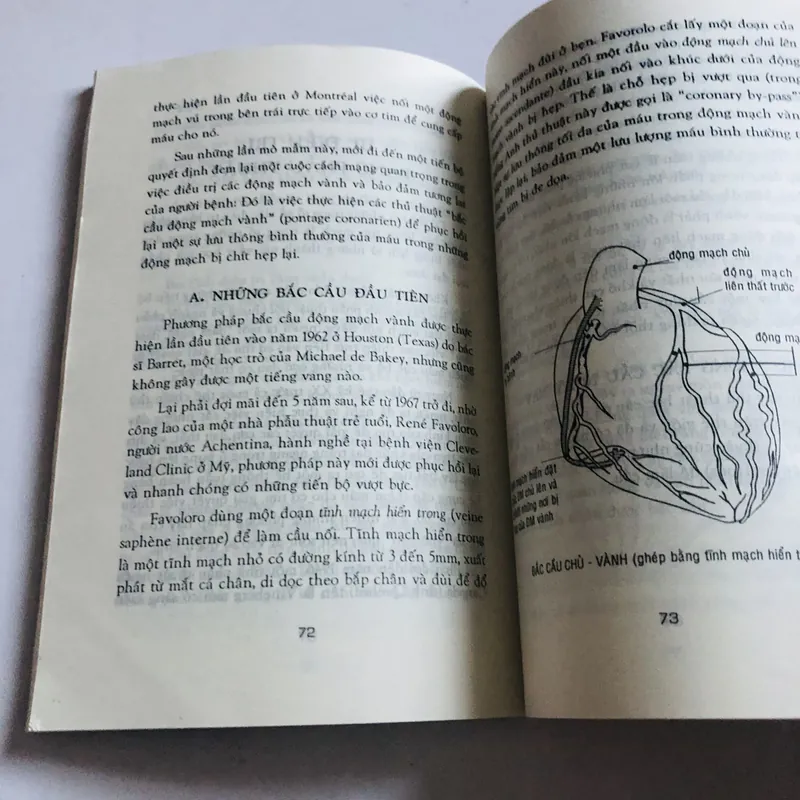 thực hiện lần đầu tiên ở Montréal việc nối một động
mạch vú trong bên trái trực tiếp vào cơ tim để cung cấp
máu cho nó.
Sau những lần mò mẫm này, mới đi đến một tiến bộ
quyết định đem lại một cuộc cách mạng quan trọng trong
việc điều trị các động mạch vành và bảo đảm tương lai
của người bệnh: Đó là việc thực hiện các thủ thuật "bắc
cầu động mạch vành" (pontage coronarien) để phục hồi
lại một sự lưu thông bình thường của máu trong những
động mạch bị chít hẹp lại.
A. NHỮNG BẮC CẦU ĐẦU TIÊN
Phương pháp bắc cầu động mạch vành được thực
hiện lần đầu tiên vào năm 1962 ở Houston (Texas) do bác
sĩ Barret, một học trò của Michael de Bakey, nhưng cũng
không gây được một tiếng vang nào.
Lại phải đợi mãi đến 5 năm sau, kể từ 1967 trở đi, nhờ
công lao của một nhà phẫu thuật trẻ tuổi, René Favoloro,
người nước Achentina, hành nghề tại bệnh viện Cleve-
land Clinic ở Mỹ, phương pháp này mới được phục hồi lại
và nhanh chóng có những tiến bộ vượt bực.
Favoloro dùng một đoạn tĩnh mạch hiển trong (veine
saphène interne) để làm cầu nối. Tĩnh mạch hiển trong
là một tĩnh mạch nhỏ có đường kính từ 3 đến 5mm, xuất
phát từ mắt cá chân, di dọc theo bắp chân và đùi để đổ
72
tĩnh mạch đùi ở bẹn. Favorolo cắt lấy một đoạn của
mạch hiển này, nối một đầu vào động mạch chủ lên
ascendante) đầu kia nối vào khúc dưới của động
vành bị hẹp. Thế là chỗ hẹp bị vượt qua (trong
Anh thủ thuật này được gọi là "coronary by-pass"
sự lưu thông tối đa của máu trong động mạch vành
lập lại, bảo đảm một lưu lượng máu bình thường
tim bị đe dọa.
động mạch chủ
động mạch
liên thất trước
động mạ
mạch
mạch hiển đặt
ĐM chủ lên và
những nơi bị
của ĐM vành
BẮC CẦU CHỦ - VÀNH (ghép bằng tĩnh mạch hiển t
73